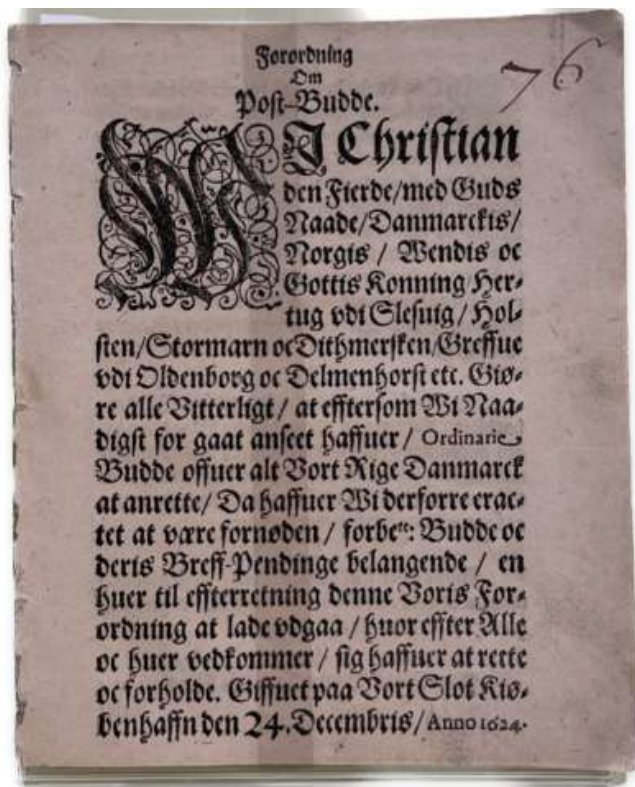 Forordning
Om
Post-Budde.
76
WJ Christian
den Fierde/med Guds
Naade/Danmarckis/
Norgis / Wendis oc
Gottis Konning Her-
tug vdi Slesuig / Hol-
sten/Stormarn oc Dithmersken/Greffue
vdi Oldenborg oc Delmenhorst etc. Giø-
re alle Vitterligt / at efftersom Wi Naa-
digst for gaat anseet haffuer / Ordinarie
Budde offuer alt Vort Rige Danmarck
at anrette/ Da haffuer Wi derforre erac-
tet at være fornøden / forbete: Budde oc
deris Breff-Pendinge belangende / en
huer til effterretning denne Voris For-
ordning at lade vdgaa / huor effter Alle
oc huer vedkommer / sig haffuer at rette
oc forholde. Giffuet paa Vort Slot Kiø-
benhaffn den 24. Decembris / Anno 1624.